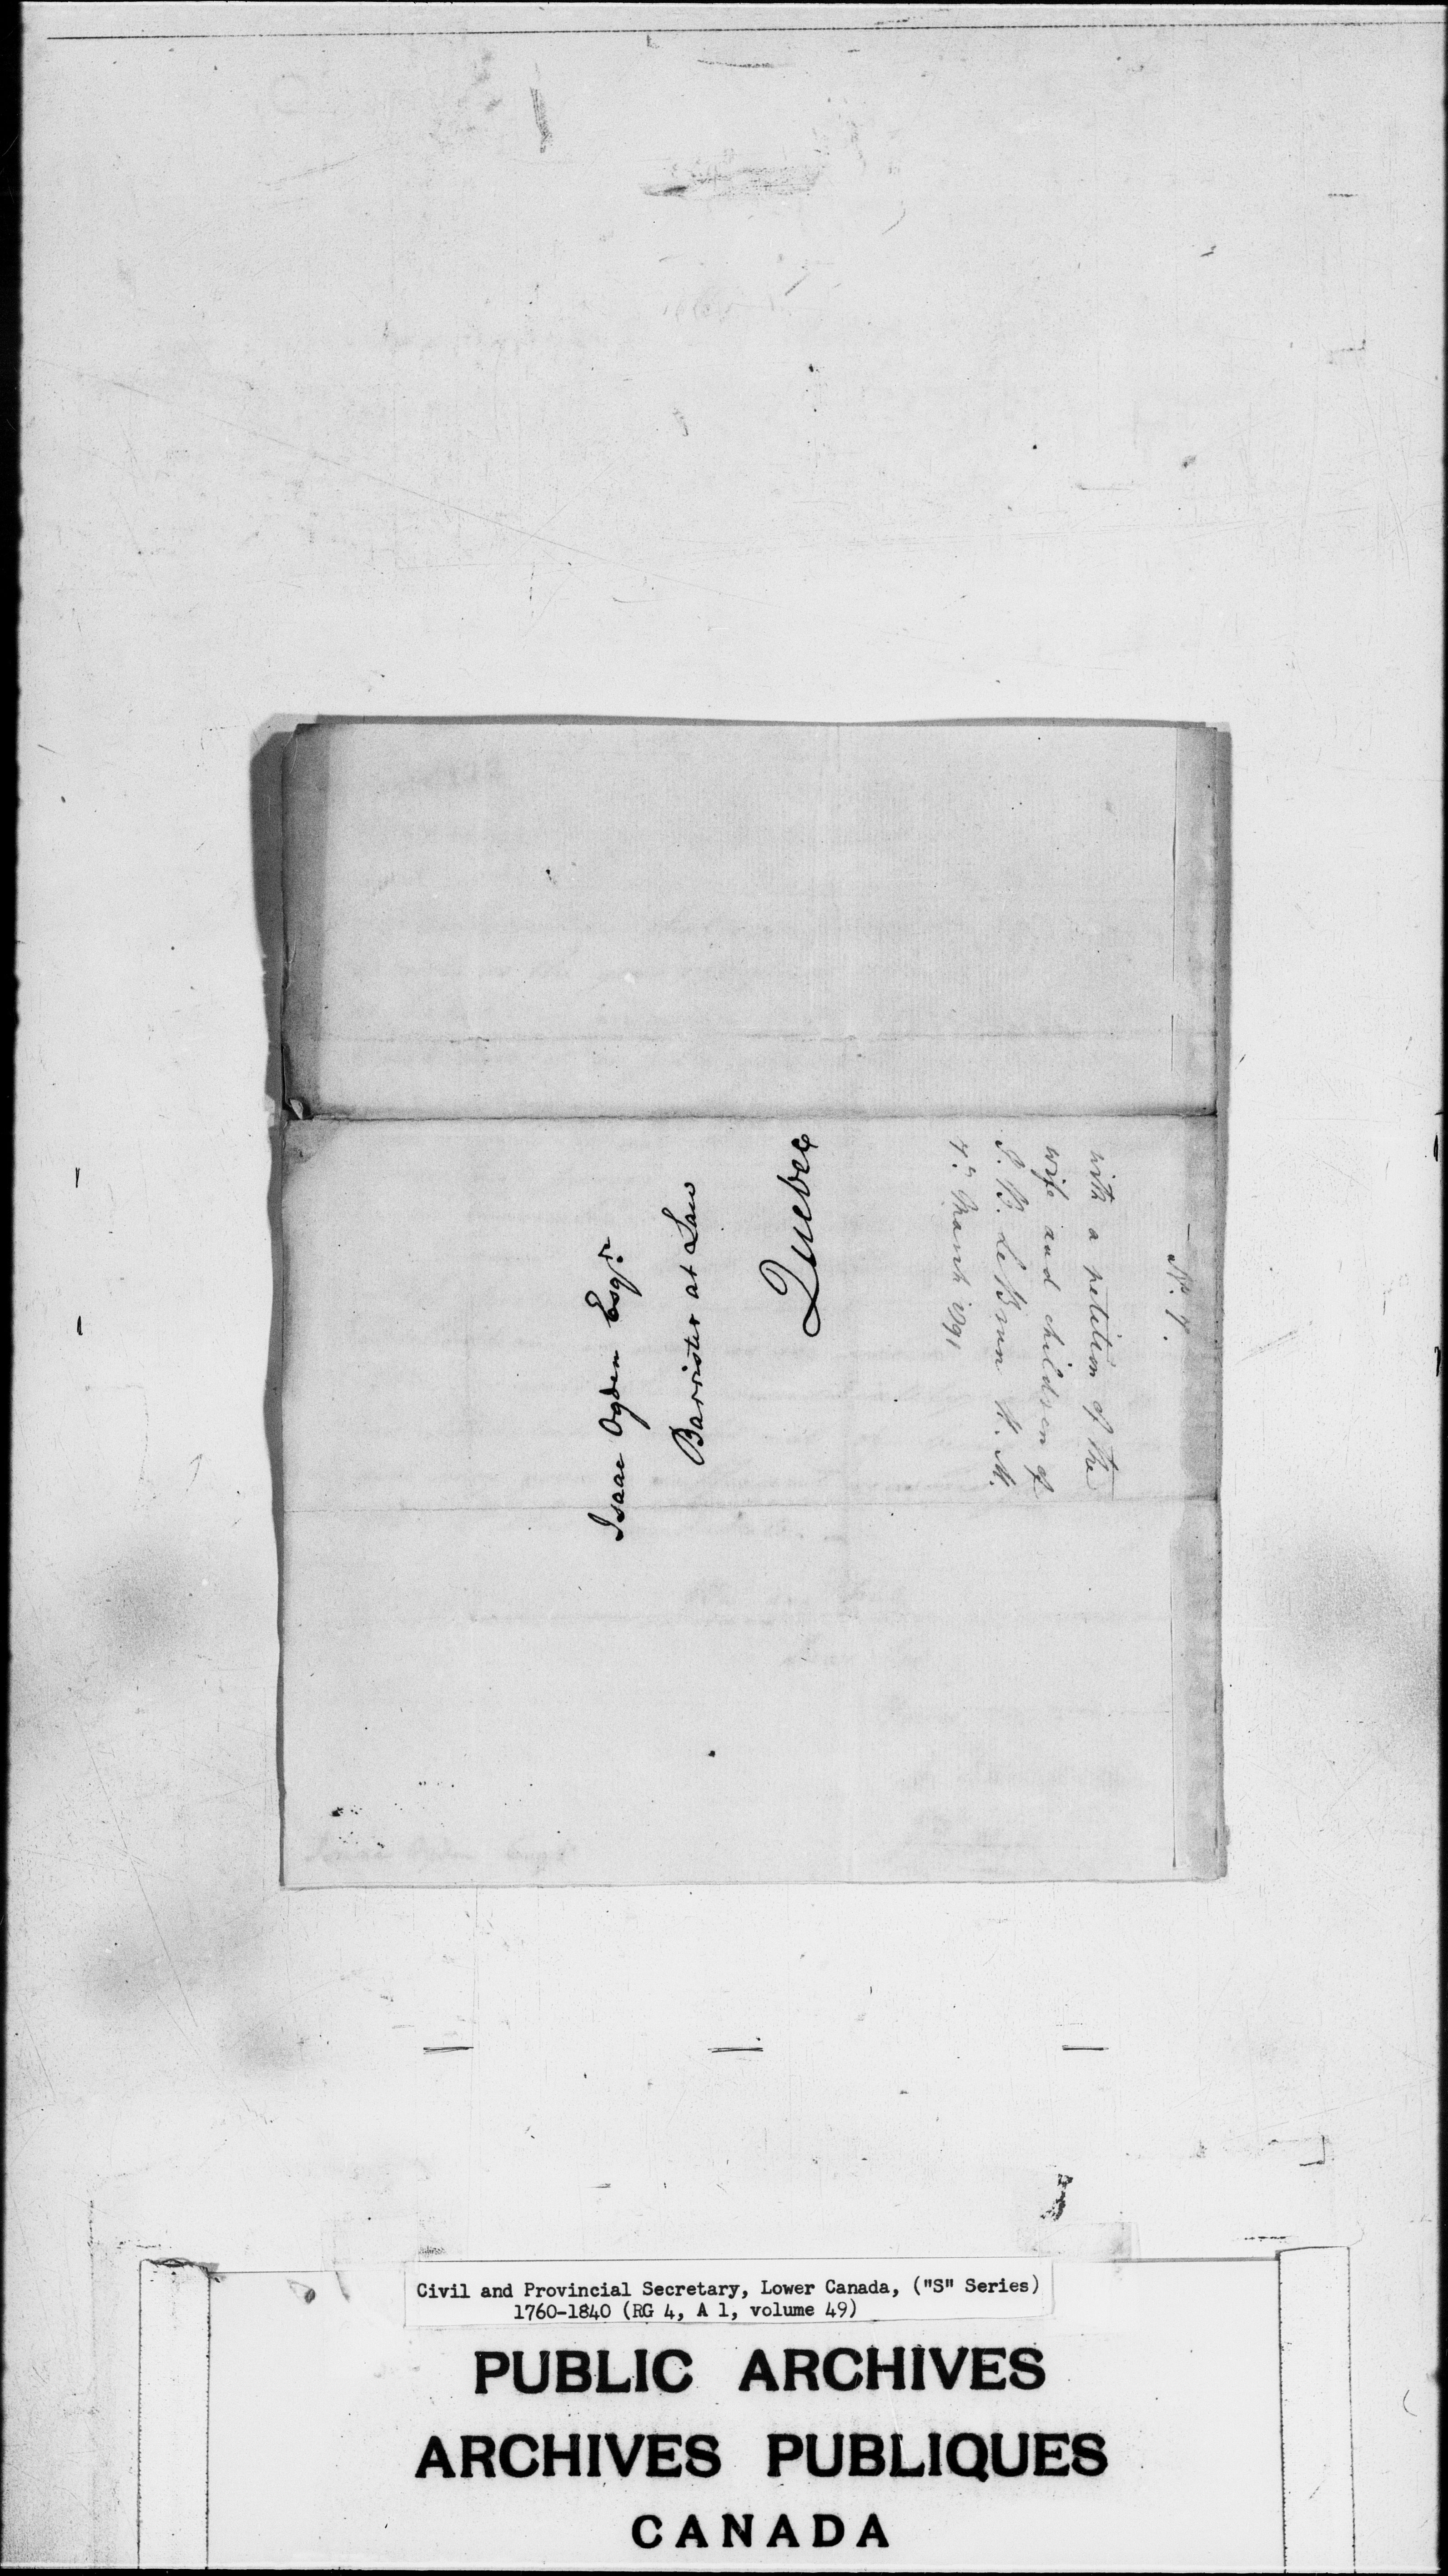 Isaac Ogden Esqr.
Barrister at Law
Quebec
No. 7.
with a petition of the
wife and children of
J. B. Le Brun
4th March 1791
Civil and Provincial Secretary, Lower Canada, ("S" Series)
1760-1840 (RG 4, A 1, volume 49)
PUBLIC ARCHIVES
ARCHIVES PUBLIQUES
CANADA